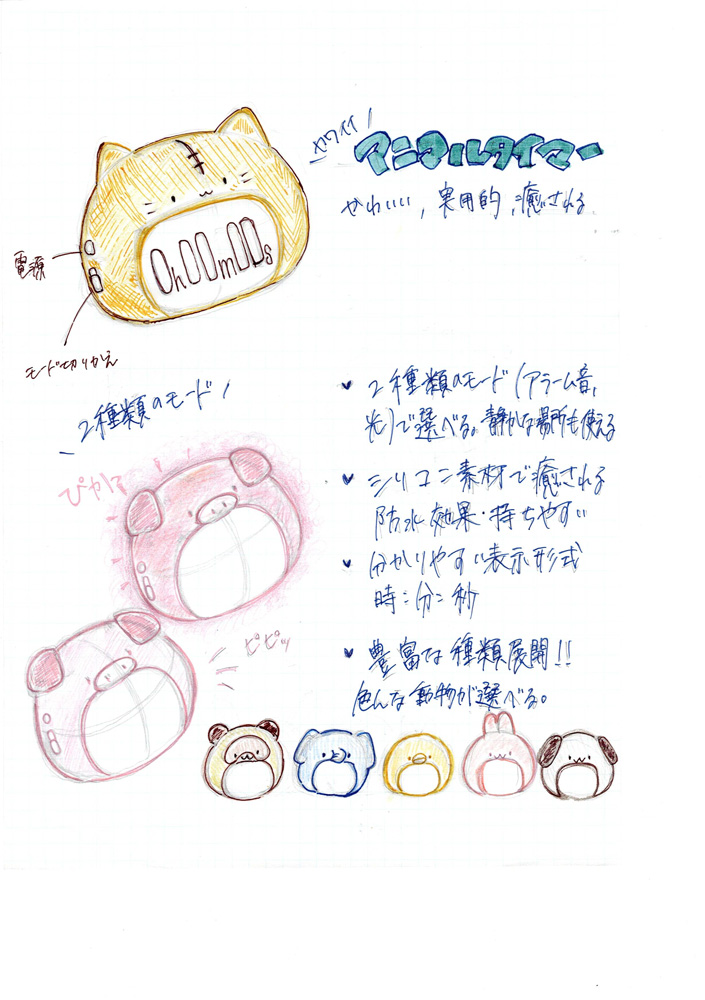 カワイイ!
アニマルタイマー
かわいい,実用的,癒される
0h00m00s
電源
モード切りかえ
2種類のモード!
ぴかっ
ピピッ
2種類のモード(アラーム音,
光)で選べる。静かな場所も使える
シリコン素材で癒される
防水効果・持ちやすい
分かりやすい表示形式
時:分:秒
豊富な種類展開!!
色んな動物が選べる。